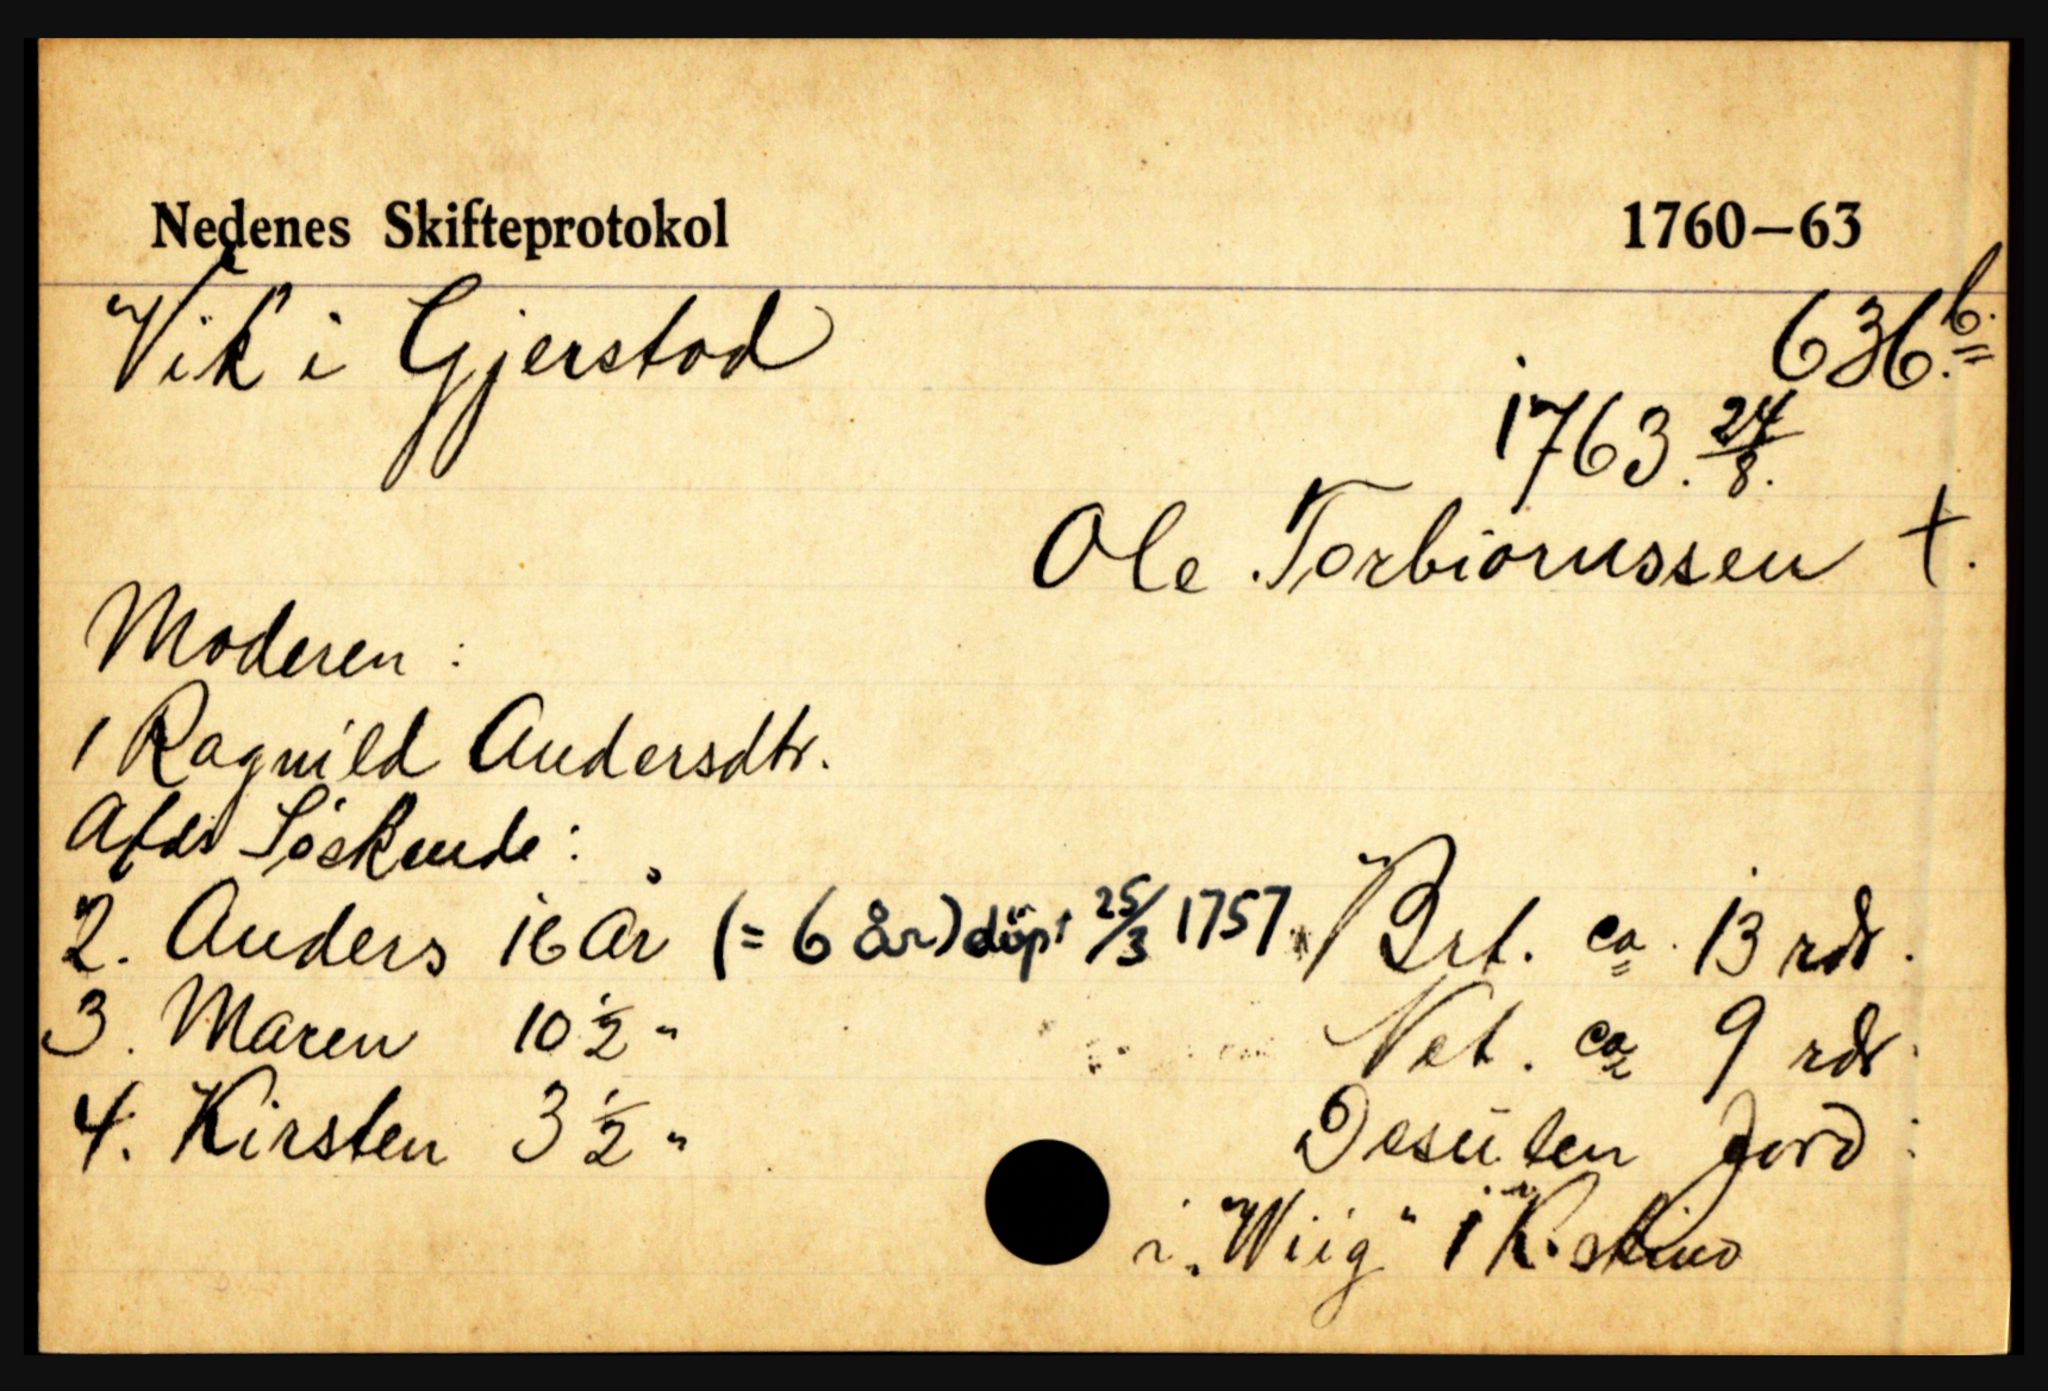 Nedenes Skifteprotokol 1760–63
Vik i Gjerstad 636b.
1763. 24/8.
Ole Torbiörnssen †.
Moderen:
1 Ragnild Andersdtr.
Afdr Söskende:
2. Anders 16 År (= 6 år) döpt 25/3 1757 Brt. ca 13 rdr.
3. Maren 10 1/2 " Net. ca 9 rdr.
4. Kirsten 3 1/2 " Desüten Jord:
i „Wiig" 1 K. skind